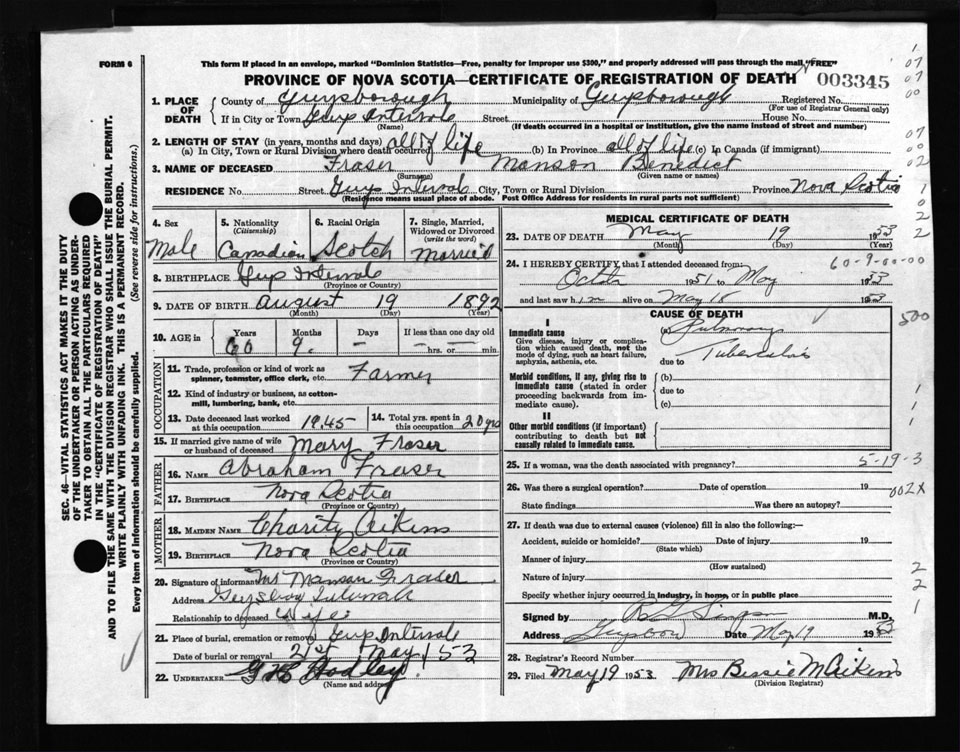 FORM 6
This form if placed in an envelope, marked "Dominion Statistics—Free, penalty for improper use $300," and properly addressed will pass through the mail, "FREE"
PROVINCE OF NOVA SCOTIA—CERTIFICATE OF REGISTRATION OF DEATH 003345
1. PLACE OF DEATH { County of Guysborough Municipality of Guysborough Registered No.
(For use of Registrar General only)
If in City or Town Guys Intervale Street House No.
(Name) (If death occurred in a hospital or institution, give the name instead of street and number)
2. LENGTH OF STAY (in years, months and days)
(a) In City, Town or Rural Division where death occurred all of life (b) In Province all of life (c) In Canada (if immigrant)
3. NAME OF DECEASED Fraser Manson Benedict
(Surname) (Given name or names)
RESIDENCE No. Street Guys Intervale City, Town or Rural Division Province Nova Scotia
(Residence means usual place of abode. Post Office Address for residents in rural parts not sufficient)
4. Sex 5. Nationality (Citizenship) 6. Racial Origin 7. Single, Married, Widowed or Divorced (write the word)
Male Canadian Scotch Married
8. BIRTHPLACE Guys Intervale
(Province or Country)
9. DATE OF BIRTH August 19 1892
(Month) (Day) (Year)
10. AGE in { Years Months Days If less than one day old
60 9 – – hrs. or – min.
OCCUPATION
11. Trade, profession or kind of work as spinner, teamster, office clerk, etc. Farmer
12. Kind of industry or business, as cotton-mill, lumbering, bank, etc.
13. Date deceased last worked at this occupation 1945 14. Total yrs. spent in this occupation 20 yrs
15. If married give name of wife or husband of deceased Mary Fraser
FATHER
16. NAME Abraham Fraser
17. BIRTHPLACE Nova Scotia
(Province or Country)
MOTHER
18. MAIDEN NAME Charity Aikins
19. BIRTHPLACE Nova Scotia
(Province or Country)
20. Signature of informant Mrs Manson Fraser
Address Guysboro Intervale
Relationship to deceased Wife
21. Place of burial, cremation or removal Guys Intervale
Date of burial or removal 21st May / 53
22. UNDERTAKER
(Name and address)
MEDICAL CERTIFICATE OF DEATH
23. DATE OF DEATH May 19 1953
(Month) (Day) (Year)
24. I HEREBY CERTIFY, that I attended deceased from: 60-9-00-00
Octob 1951 to May 1953
and last saw him alive on May 18 1953
CAUSE OF DEATH 500
I
Immediate cause (a) Pulmonary
Give disease, injury or complication which caused death, not the mode of dying, such as heart failure, asphyxia, asthenia, etc. due to Tuberculosis
Morbid conditions, if any, giving rise to immediate cause (stated in order proceeding backwards from immediate cause). (b)
due to
(c)
II
Other morbid conditions (if important) contributing to death but not causally related to immediate cause.
25. If a woman, was the death associated with pregnancy? 5-19-3
26. Was there a surgical operation? Date of operation 19 002X
State findings Was there an autopsy?
27. If death was due to external causes (violence) fill in also the following:—
Accident, suicide or homicide? Date of injury 19
(State which)
Manner of injury
(How sustained)
Nature of injury
Specify whether injury occurred in industry, in home, or in public place
Signed by M.D.
Address Guysboro Date May 19 1953
28. Registrar's Record Number
29. Filed May 19 1953 Mrs Bessie M Aikins
(Division Registrar)
SEC. 46—VITAL STATISTICS ACT MAKES IT THE DUTY
OF THE UNDERTAKER OR PERSON ACTING AS UNDER-
TAKER TO OBTAIN ALL THE PARTICULARS REQUIRED
IN THE "CERTIFICATE OF REGISTRATION OF DEATH"
AND TO FILE THE SAME WITH THE DIVISION REGISTRAR WHO SHALL ISSUE THE BURIAL PERMIT.
WRITE PLAINLY WITH UNFADING INK. THIS IS A PERMANENT RECORD.
Every item of information should be carefully supplied. (See reverse side for instructions.)